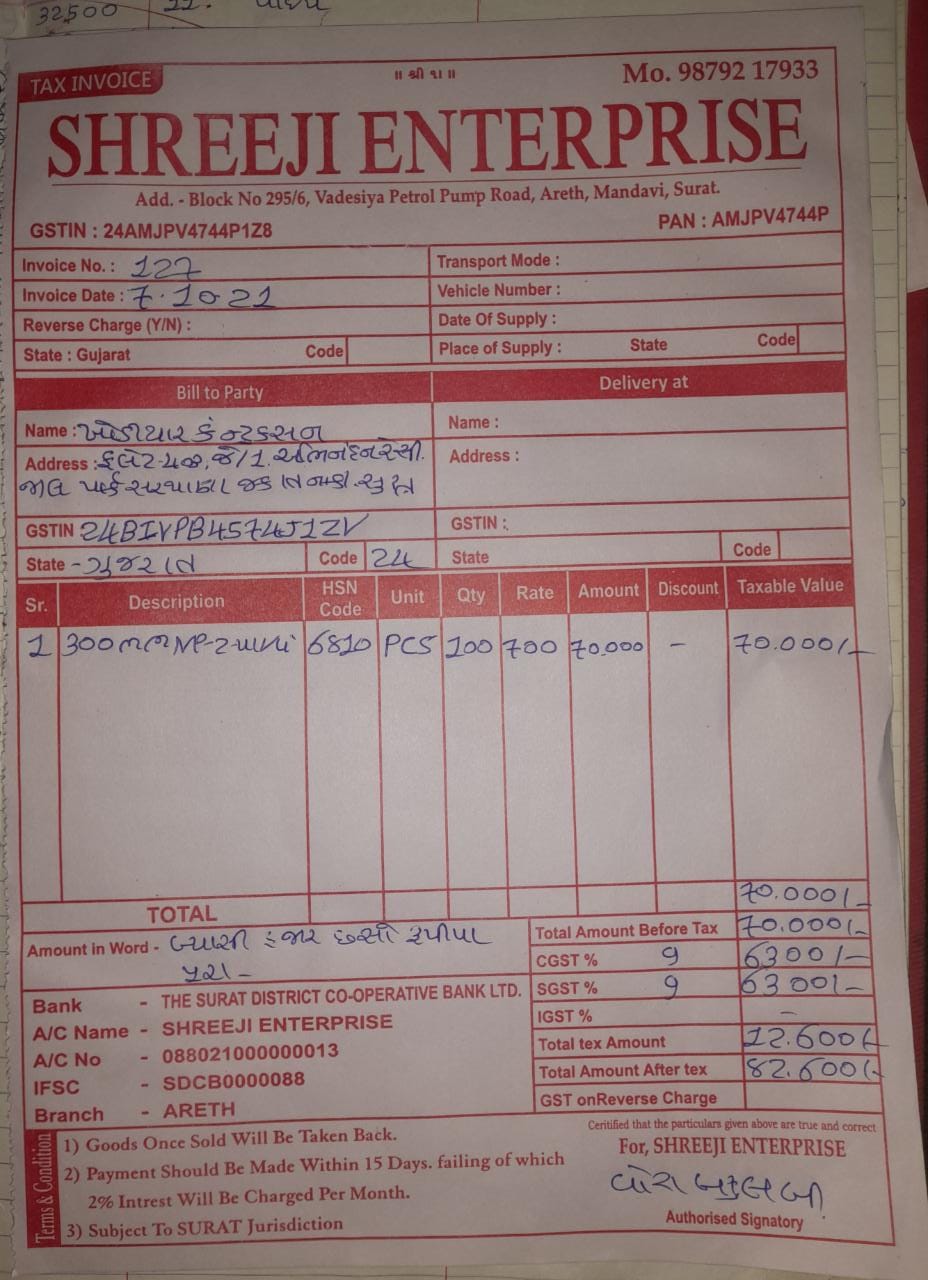 32500
TAX INVOICE
॥ શ્રી ૧॥ ॥
Mo. 98792 17933
SHREEJI ENTERPRISE
Add. - Block No 295/6, Vadesiya Petrol Pump Road, Areth, Mandavi, Surat.
GSTIN : 24AMJPV4744P1Z8
PAN : AMJPV4744P
Invoice No. : 127
Transport Mode :
Invoice Date : 7.10.21
Vehicle Number :
Reverse Charge (Y/N) :
Date Of Supply :
State : Gujarat Code
Place of Supply : State Code
Bill to Party
Delivery at
Name : ખોડીયાર કંન્ટ્રકસન
Name :
Address : ફલેટ જે/1. અભિનંદન રેસી.
Address :
પાર્ક સરથાણા જકાતનાકા સુરત
GSTIN 24BIVPB4574J1ZV
GSTIN :
State - ગુજરાત Code 24
State Code
Sr. Description HSN Code Unit Qty Rate Amount Discount Taxable Value
1 300 NP-2 6810 PCS 100 700 70.000 - 70.000/-
TOTAL 70.000/-
Amount in Word - બ્યાસી હજાર છસો રૂપીયા
પુરા -
Total Amount Before Tax 70.000/-
CGST % 9 6300/-
SGST % 9 6300/-
IGST % -
Total tex Amount 12.600/-
Total Amount After tex 82.600/-
GST onReverse Charge
Bank - THE SURAT DISTRICT CO-OPERATIVE BANK LTD.
A/C Name - SHREEJI ENTERPRISE
A/C No - 088021000000013
IFSC - SDCB0000088
Branch - ARETH
Terms & Condition
1) Goods Once Sold Will Be Taken Back.
2) Payment Should Be Made Within 15 Days. failing of which
2% Intrest Will Be Charged Per Month.
3) Subject To SURAT Jurisdiction
Ceritified that the particulars given above are true and correct
For, SHREEJI ENTERPRISE
Authorised Signatory